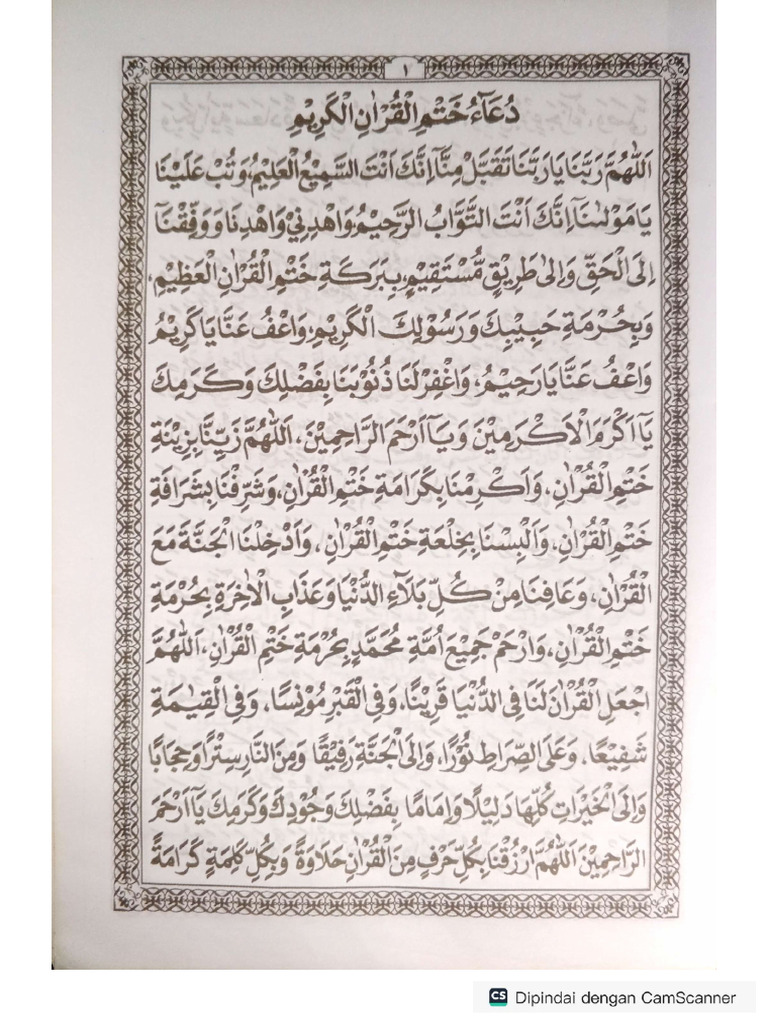 ١
دُعَآءُ خَتْمِ الْقُرْاٰنِ الْكَرِيْمِ
اَللّٰهُمَّ رَبَّنَا يَا رَبَّنَا تَقَبَّلْ مِنَّآ اِنَّكَ اَنْتَ السَّمِيْعُ الْعَلِيْمُ، وَتُبْ عَلَيْنَا
يَا مَوْلٰىنَآ اِنَّكَ اَنْتَ التَّوَّابُ الرَّحِيْمُ، وَاهْدِنِيْ وَاهْدِنَا وَوَفِّقْنَآ
اِلَى الْحَقِّ وَاِلٰى طَرِيْقٍ مُّسْتَقِيْمٍ، بِبَرَكَةِ خَتْمِ الْقُرْاٰنِ الْعَظِيْمِ،
وَبِحُرْمَةِ حَبِيْبِكَ وَرَسُوْلِكَ الْكَرِيْمِ، وَاعْفُ عَنَّا يَا كَرِيْمُ
وَاعْفُ عَنَّا يَا رَحِيْمُ، وَاغْفِرْ لَنَا ذُنُوْبَنَا بِفَضْلِكَ وَكَرَمِكَ
يَآ اَكْرَمَ الْاَكْرَمِيْنَ وَيَآ اَرْحَمَ الرَّاحِمِيْنَ، اَللّٰهُمَّ زَيِّنَّا بِزِيْنَةِ
خَتْمِ الْقُرْاٰنِ، وَاَكْرِمْنَا بِكَرَامَةِ خَتْمِ الْقُرْاٰنِ، وَشَرِّفْنَا بِشَرَافَةِ
خَتْمِ الْقُرْاٰنِ، وَاَلْبِسْنَا بِخِلْعَةِ خَتْمِ الْقُرْاٰنِ، وَاَدْخِلْنَا الْجَنَّةَ مَعَ
الْقُرْاٰنِ، وَعَافِنَا مِنْ كُلِّ بَلَآءِ الدُّنْيَا وَعَذَابِ الْاٰخِرَةِ بِحُرْمَةِ
خَتْمِ الْقُرْاٰنِ، وَارْحَمْ جَمِيْعَ اُمَّةِ مُحَمَّدٍ بِحُرْمَةِ خَتْمِ الْقُرْاٰنِ، اَللّٰهُمَّ
اجْعَلِ الْقُرْاٰنَ لَنَا فِى الدُّنْيَا قَرِيْنًا، وَفِى الْقَبْرِ مُوْنِسًا، وَفِى الْقِيٰمَةِ
شَفِيْعًا، وَعَلَى الصِّرَاطِ نُوْرًا، وَاِلَى الْجَنَّةِ رَفِيْقًا وَمِنَ النَّارِ سِتْرًا وَحِجَابًا
وَاِلَى الْخَيْرَاتِ كُلِّهَا دَلِيْلًا وَاِمَامًا بِفَضْلِكَ وَجُوْدِكَ وَكَرَمِكَ يَآ اَرْحَمَ
الرَّاحِمِيْنَ اَللّٰهُمَّ ارْزُقْنَا بِكُلِّ حَرْفٍ مِنَ الْقُرْاٰنِ حَلَاوَةً وَبِكُلِّ كَلِمَةٍ كَرَامَةً
CS Dipindai dengan CamScanner